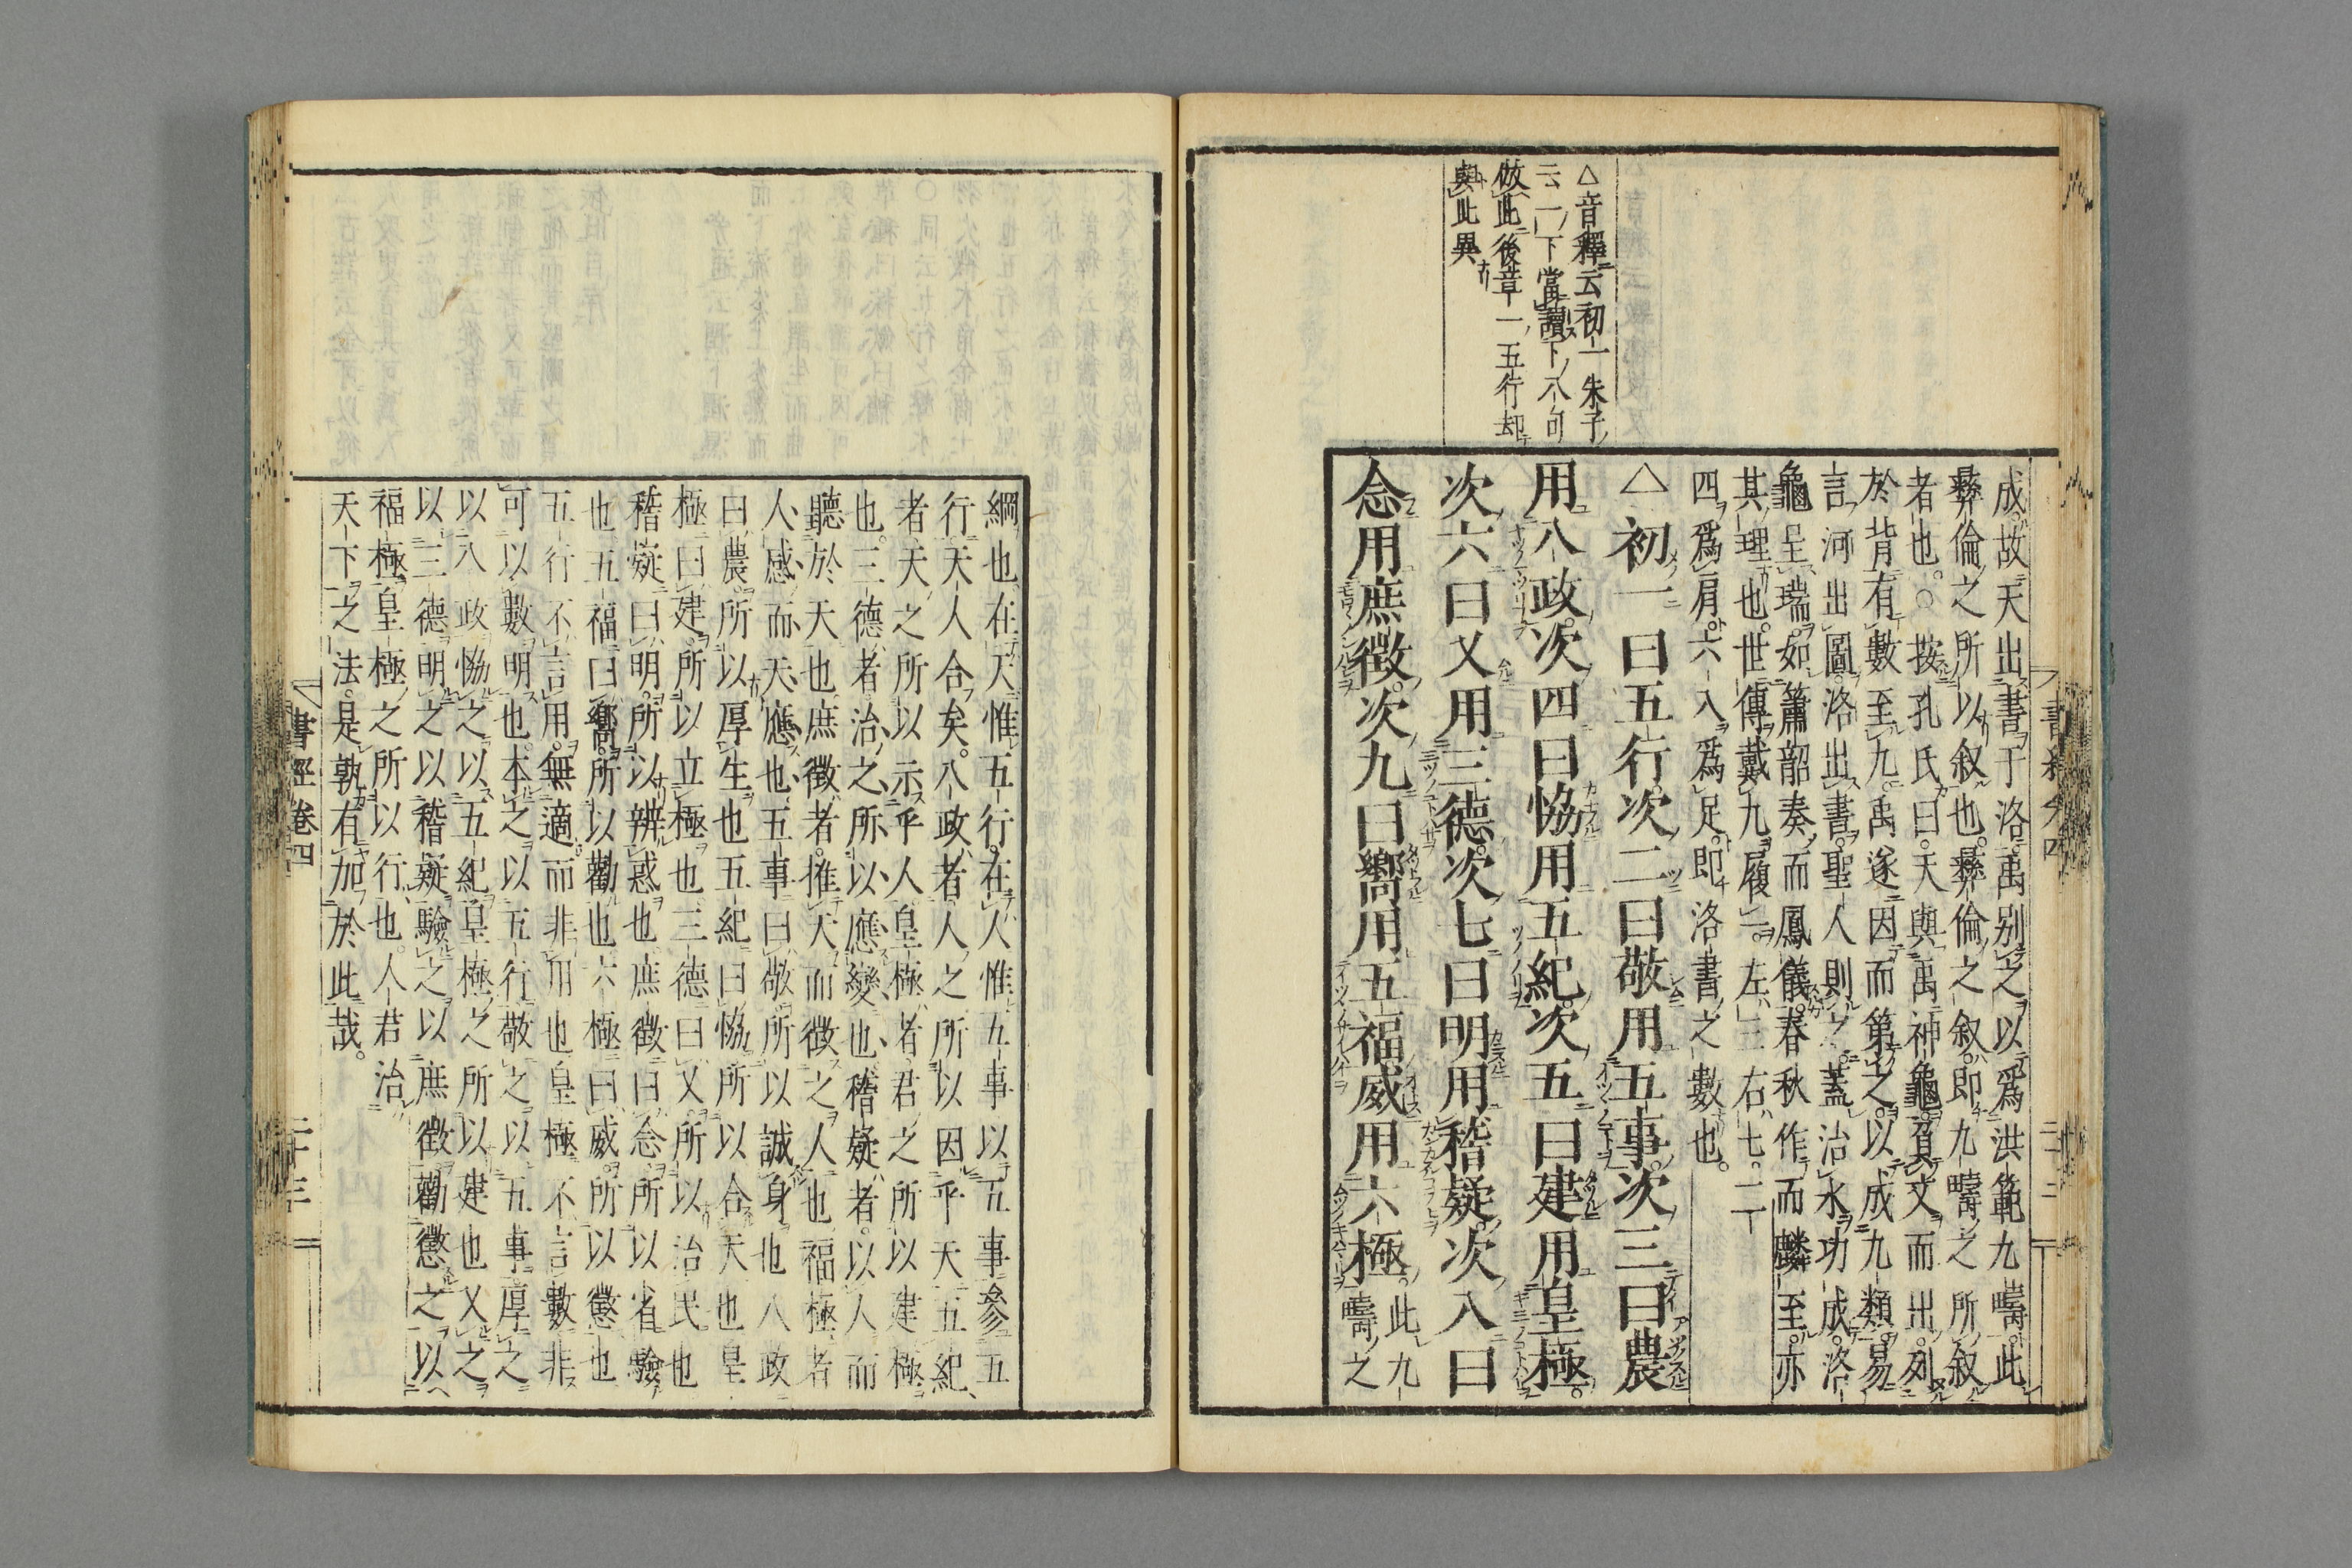 成故天出書于洛禹別之以爲洪範九疇此
彝倫之所以叙也彝倫之叙即九疇之所叙
者也○按孔氏曰天與禹神龜負文而出列
於背有數至九禹遂因而第之以成九類易
言河出圖洛出書聖人則之蓋治水功成洛
龜呈瑞如簫韶奏而鳳儀春秋作而麟至亦
其理也世傳戴九履一左三右七二
四爲肩六八爲足即洛書之數也
△初一曰五行次二曰敬用五事次三曰農
用八政次四曰恊用五紀次五曰建用皇極
次六曰乂用三德次七曰明用稽疑次八曰
念用庶徵次九曰嚮用五福威用六極
此九
疇之
△音釋云初一朱子
云一下當讀下八句
倣此後章一五行却
與此異
書經卷四
綱也在天惟五行在人惟五事以五事參五
行天人合矣八政者人之所以因乎天五紀
者天之所以示乎人皇極者君之所以建極
也三德者治之所以應變也稽疑者以人而
聽於天也庶徵者推天而徵之人也福極者
人感而天應也五事曰敬所以誠身也八政
曰農所以厚生也五紀曰恊所以合天也皇
極曰建所以立極也三德曰乂所以治民也
稽疑曰明所以辨惑也庶徵曰念所以省驗
也五福曰嚮所以勸也六極曰威所以懲也
五行不言用無適而非用也皇極不言數非
可以數明也本之以五行敬之以五事厚之
以八政恊之以五紀皇極之所以建也乂之
以三德明之以稽疑驗之以庶徵勸懲之以
福極皇極之所以行也人君治
天下之法是孰有加於此哉
書經卷四
二十三